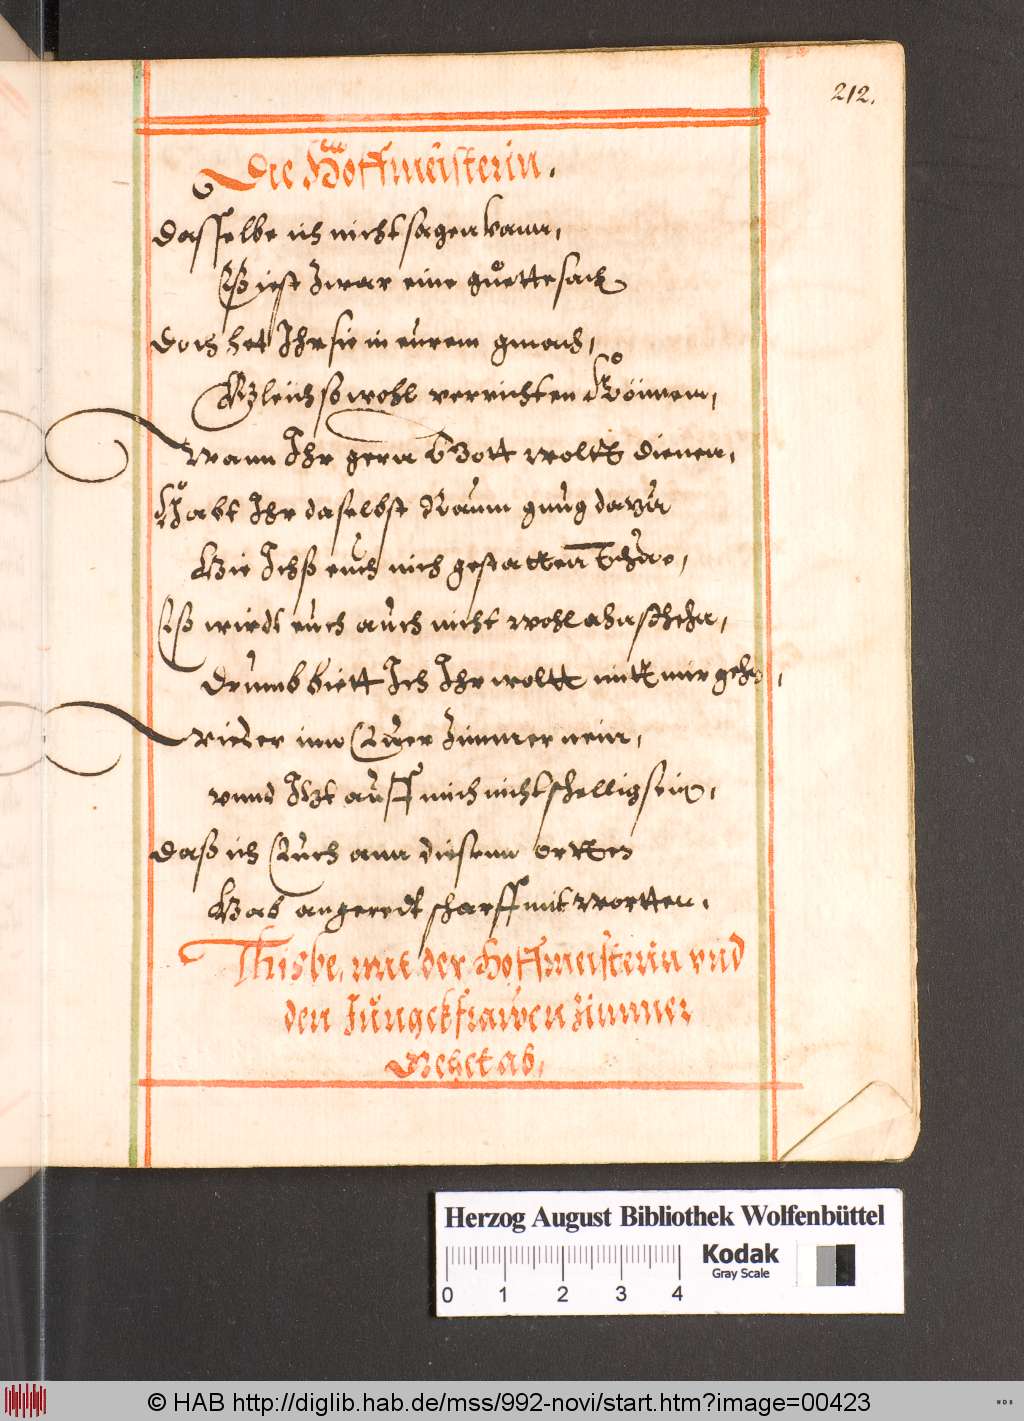 212.
Die Hoffmeisterin.
Dasselbe ich nicht sagen kann,
Eß ist zwar eine guette sach
Doch het Ihr sie in eurem gmach,
Gleich so wohl verrichten Können,
Wann Ihr gern Gott woltt dienen,
Habt Ihr daselbst Raum gnug darzu
Wie Ichß euch nich gestatten Thue,
Eß wirdt euch auch nicht wohl
Drumb biett Ich Ihr woltt mitt mir gehn,
wider inn Euer Zimmer nein,
vnnd Itzt auff mich nicht schellig sein,
Daß ich Euch ann diesem ortten
Hab angeredt scharff mit wortten.
Thisbe, mit der Hoffmeisterin vnd
den Jungckfrawen Zimmer
Gehet ab,
Herzog August Bibliothek Wolfenbüttel
Kodak
Gray Scale
0 1 2 3 4
© HAB http://diglib.hab.de/mss/992-novi/start.htm?image=00423